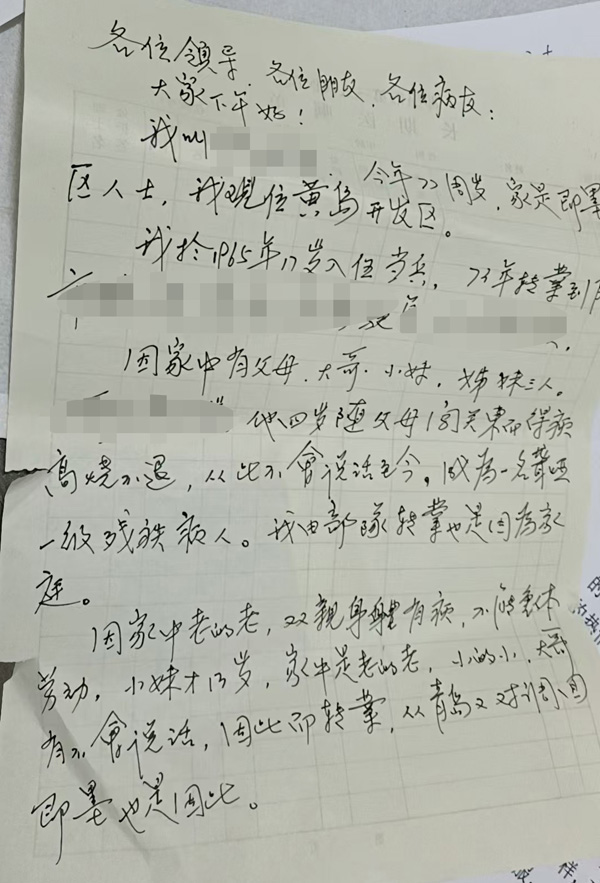 各位领导、各位朋友、各位病友：
大家下午好！
我叫
今年77周岁，家是即墨
区人士，我现住黄岛开发区。
我於1965年17岁入伍当兵，73年转业到
因家中有父母、大哥、小妹，姊妹三人。
他四岁随父母闯关东而得病
高烧不退，从此不會说话至今，成為一名聋哑
一级残疾病人。我由部隊转業也是因為家
庭。
因家中老的老，双親身體有病，不能重体
劳动，小妹才13岁，家中是老的老，小的小，大哥
有不會说话，因此而转業，从青岛又对调回
即墨也是因此。